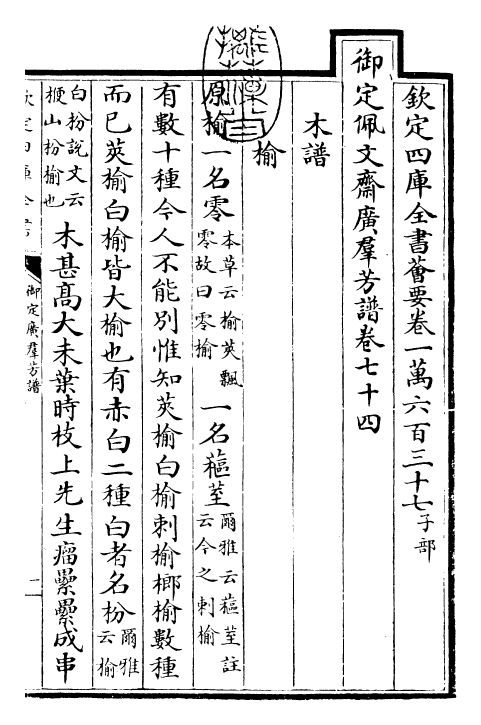 欽定四庫全書薈要卷一萬六百三十七子部
御定佩文齋廣羣芳譜卷七十四
木譜
榆
原榆一名零本草云榆莢飄零故曰零榆一名藲荎爾雅云藲荎註云今之刺榆
有數十種今人不能別惟知莢榆白榆刺榆榔榆數種
而已莢榆白榆皆大榆也有赤白二種白者名枌爾雅云榆
白枌說文云梗山枌榆也木甚高大未葉時枝上先生瘤纍纍成串
欽定四庫全書
御定廣羣芳譜
一